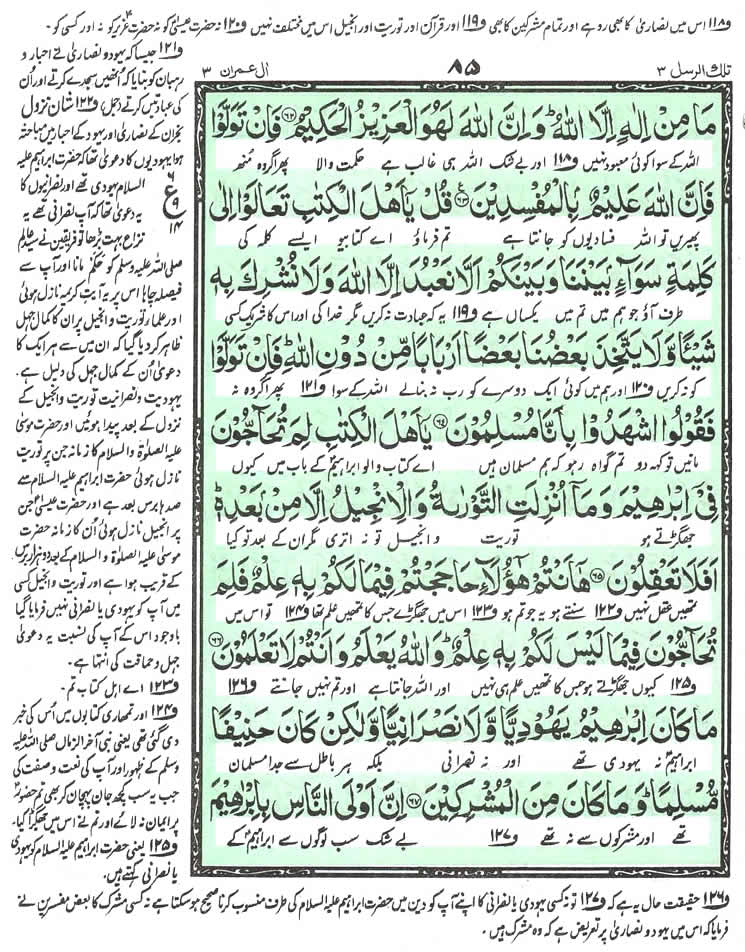 و۱۱۸ اس میں نصاریٰ کا بھی رد ہے اور تمام مشرکین کا بھی و۱۱۹ اور قرآن اور توریت اور انجیل اس میں مختلف نہیں و۱۲۰ نہ حضرت عیسیٰ کو نہ حضرت عزیر کو نہ اور کسی کو۔
تلك الرسل ۳
۸۵
ال عمران ۳
مَا مِنْ اِلٰهٍ اِلَّا اللّٰهُ ؕ وَاِنَّ اللّٰهَ لَهُوَ الْعَزِيْزُ الْحَكِيْمُ ﴿۶۲﴾ فَاِنْ تَوَلَّوْا
اللہ کے سوا کوئی معبود نہیں و۱۱۸ اور بے شک اللہ ہی غالب ہے حکمت والا پھر اگر وہ منھ
فَاِنَّ اللّٰهَ عَلِيْمٌۢ بِالْمُفْسِدِيْنَ ﴿۶۳﴾ قُلْ يٰۤاَهْلَ الْكِتٰبِ تَعَالَوْا اِلٰى
پھیریں تو اللہ فسادیوں کو جانتا ہے تم فرماؤ اے کتابیو ایسے کلمہ کی
كَلِمَةٍ سَوَآءٍۭ بَيْنَنَا وَبَيْنَكُمْ اَلَّا نَعْبُدَ اِلَّا اللّٰهَ وَلَا نُشْرِكَ بِهٖ
طرف آؤ جو ہم میں تم میں یکساں ہے و۱۱۹ یہ کہ عبادت نہ کریں مگر خدا کی اور اس کا شریک کسی
شَيْئًا وَّلَا يَتَّخِذَ بَعْضُنَا بَعْضًا اَرْبَابًا مِّنْ دُوْنِ اللّٰهِ ؕ فَاِنْ تَوَلَّوْا
کو نہ کریں و۱۲۰ اور ہم میں کوئی ایک دوسرے کو رب نہ بنالے اللہ کے سوا و۱۲۱ پھر اگر وہ نہ
فَقُوْلُوا اشْهَدُوْا بِاَنَّا مُسْلِمُوْنَ ﴿۶۴﴾ يٰۤاَهْلَ الْكِتٰبِ لِمَ تُحَآجُّوْنَ
مانیں تو کہہ دو تم گواہ رہو کہ ہم مسلمان ہیں اے کتاب والو ابراہیم کے باب میں کیوں
فِيْۤ اِبْرٰهِيْمَ وَمَاۤ اُنْزِلَتِ التَّوْرٰىةُ وَالْاِنْجِيْلُ اِلَّا مِنْۢ بَعْدِهٖ ؕ
جھگڑتے ہو توریت و انجیل تو نہ اتری مگر ان کے بعد تو کیا
اَفَلَا تَعْقِلُوْنَ ﴿۶۵﴾ هٰۤاَنْتُمْ هٰۤؤُلَآءِ حَاجَجْتُمْ فِيْمَا لَكُمْ بِهٖ عِلْمٌ فَلِمَ
تمھیں عقل نہیں و۱۲۲ سنتے ہو یہ جو تم ہو و۱۲۳ اس میں جھگڑے جس کا تمھیں علم تھا و۱۲۴ تو اس میں
تُحَآجُّوْنَ فِيْمَا لَيْسَ لَكُمْ بِهٖ عِلْمٌ ؕ وَاللّٰهُ يَعْلَمُ وَاَنْتُمْ لَا تَعْلَمُوْنَ ﴿۶۶﴾
و۱۲۵ کیوں جھگڑتے ہو جس کا تمھیں علم ہی نہیں اور اللہ جانتا ہے اور تم نہیں جانتے و۱۲۶
مَا كَانَ اِبْرٰهِيْمُ يَهُوْدِيًّا وَّلَا نَصْرَانِيًّا وَّلٰكِنْ كَانَ حَنِيْفًا
ابراہیم نہ یہودی تھے اور نہ نصرانی بلکہ ہر باطل سے جدا مسلمان
مُّسْلِمًا ؕ وَمَا كَانَ مِنَ الْمُشْرِكِيْنَ ﴿۶۷﴾ اِنَّ اَوْلَى النَّاسِ بِاِبْرٰهِيْمَ
تھے اور مشرکوں سے نہ تھے و۱۲۷ بے شک سب لوگوں سے ابراہیم کے
و۱۲۱ جیسا کہ یہود و نصاریٰ نے احبار و
رہبان کو بنایا کہ انھیں سجدے کرتے اور ان
کی عبادتیں کرتے (جمل) و۱۲۲ شان نزول
نجران کے نصاریٰ اور یہود کے احبار میں مباحثہ
ہوا یہودیوں کا دعویٰ تھا کہ حضرت ابراہیم علیہ
السلام یہودی تھے اور نصرانیوں کا
یہ دعویٰ تھا کہ آپ نصرانی تھے یہ
نزاع بہت بڑھا تو فریقین نے سید عالم
صلی اللہ علیہ وسلم کو حَکَم مانا اور آپ سے
فیصلہ چاہا اس پر یہ آیت کریمہ نازل ہوئی
اور علماء توریت و انجیل پر ان کا کمال جہل
ظاہر کر دیا گیا کہ ان میں سے ہر ایک کا
دعویٰ ان کے کمال جہل کی دلیل ہے۔
یہودیت و نصرانیت توریت و انجیل کے
نزول کے بعد پیدا ہوئیں اور حضرت موسیٰ
علیہ الصلوٰۃ والسلام کا زمانہ جن پر توریت
نازل ہوئی حضرت ابراہیم علیہ السلام سے
صدہا برس بعد ہے اور حضرت عیسیٰ جن
پر انجیل نازل ہوئی ان کا زمانہ حضرت
موسیٰ علیہ الصلوٰۃ والسلام کے بعد دو ہزار برس
کے قریب ہوا ہے اور توریت و انجیل کسی
میں آپ کو یہودی یا نصرانی نہیں فرمایا گیا
باوجود اس کے آپ کی نسبت یہ دعویٰ
جہل و حماقت کی انتہا ہے۔
و۱۲۳ اے اہل کتاب تم۔
و۱۲۴ اور تمھاری کتابوں میں اس کی خبر
دی گئی تھی یعنی نبی آخر الزماں صلی اللہ علیہ
وسلم کے ظہور اور آپ کی نعت و صفت کی
جب یہ سب کچھ جان پہچان کر بھی تم حضور
پر ایمان نہ لائے اور تم نے اس میں جھگڑا کیا۔
و۱۲۵ یعنی حضرت ابراہیم علیہ السلام کو یہودی
یا نصرانی کہتے ہیں۔
ع ۶ ۹ ۱۴
و۱۲۶ حقیقت حال یہ ہے کہ و۱۲۷ تو نہ کسی یہودی یا نصرانی کا اپنے آپ کو دین میں حضرت ابراہیم علیہ السلام کی طرف منسوب کرنا صحیح ہو سکتا ہے نہ کسی مشرک کا بعض مفسرین نے
فرمایا کہ اس میں یہود و نصاریٰ پر تعریض ہے کہ وہ مشرک ہیں۔